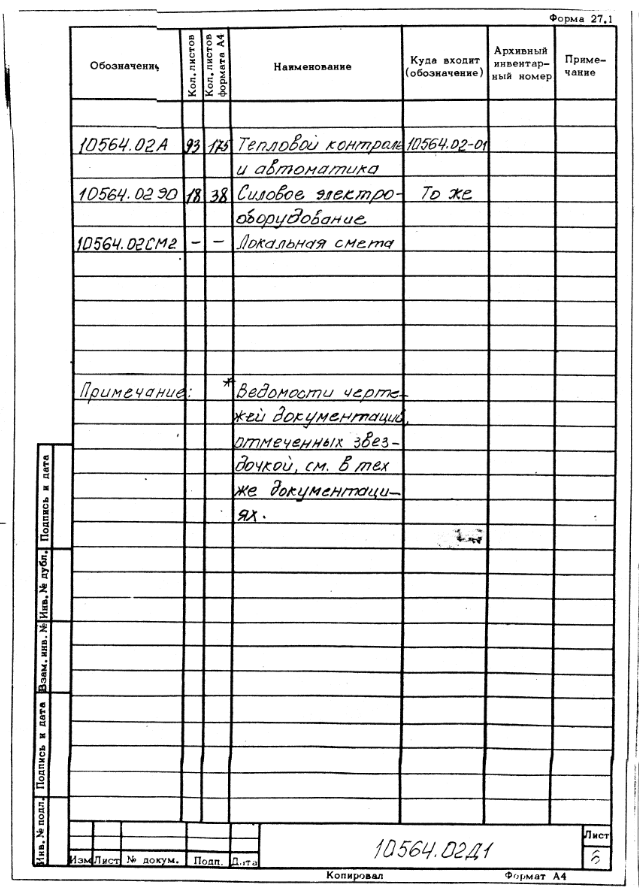 Форма 27.1
Обозначение
Кол. листов
Кол. листов формата А4
Наименование
Куда входит (обозначение)
Архивный инвентар-ный номер
Приме-чание
10564.02А 93 175 Тепловой контроль 10564.02-01
и автоматика
10564.02ЭО 18 38 Силовое электро- То же
оборудование
10564.02СМ2 – – Локальная смета
Примечание: * Ведомости черте-
жей документаций,
отмеченных звез-
дочкой, см. в тех
же документаци-
ях.
Подпись и дата
Инв. № дубл.
Взам. инв. №
Подпись и дата
Инв. № подл.
Изм Лист № докум. Подп. Дата
10564.02Д1
Лист
Копировал Формат А4